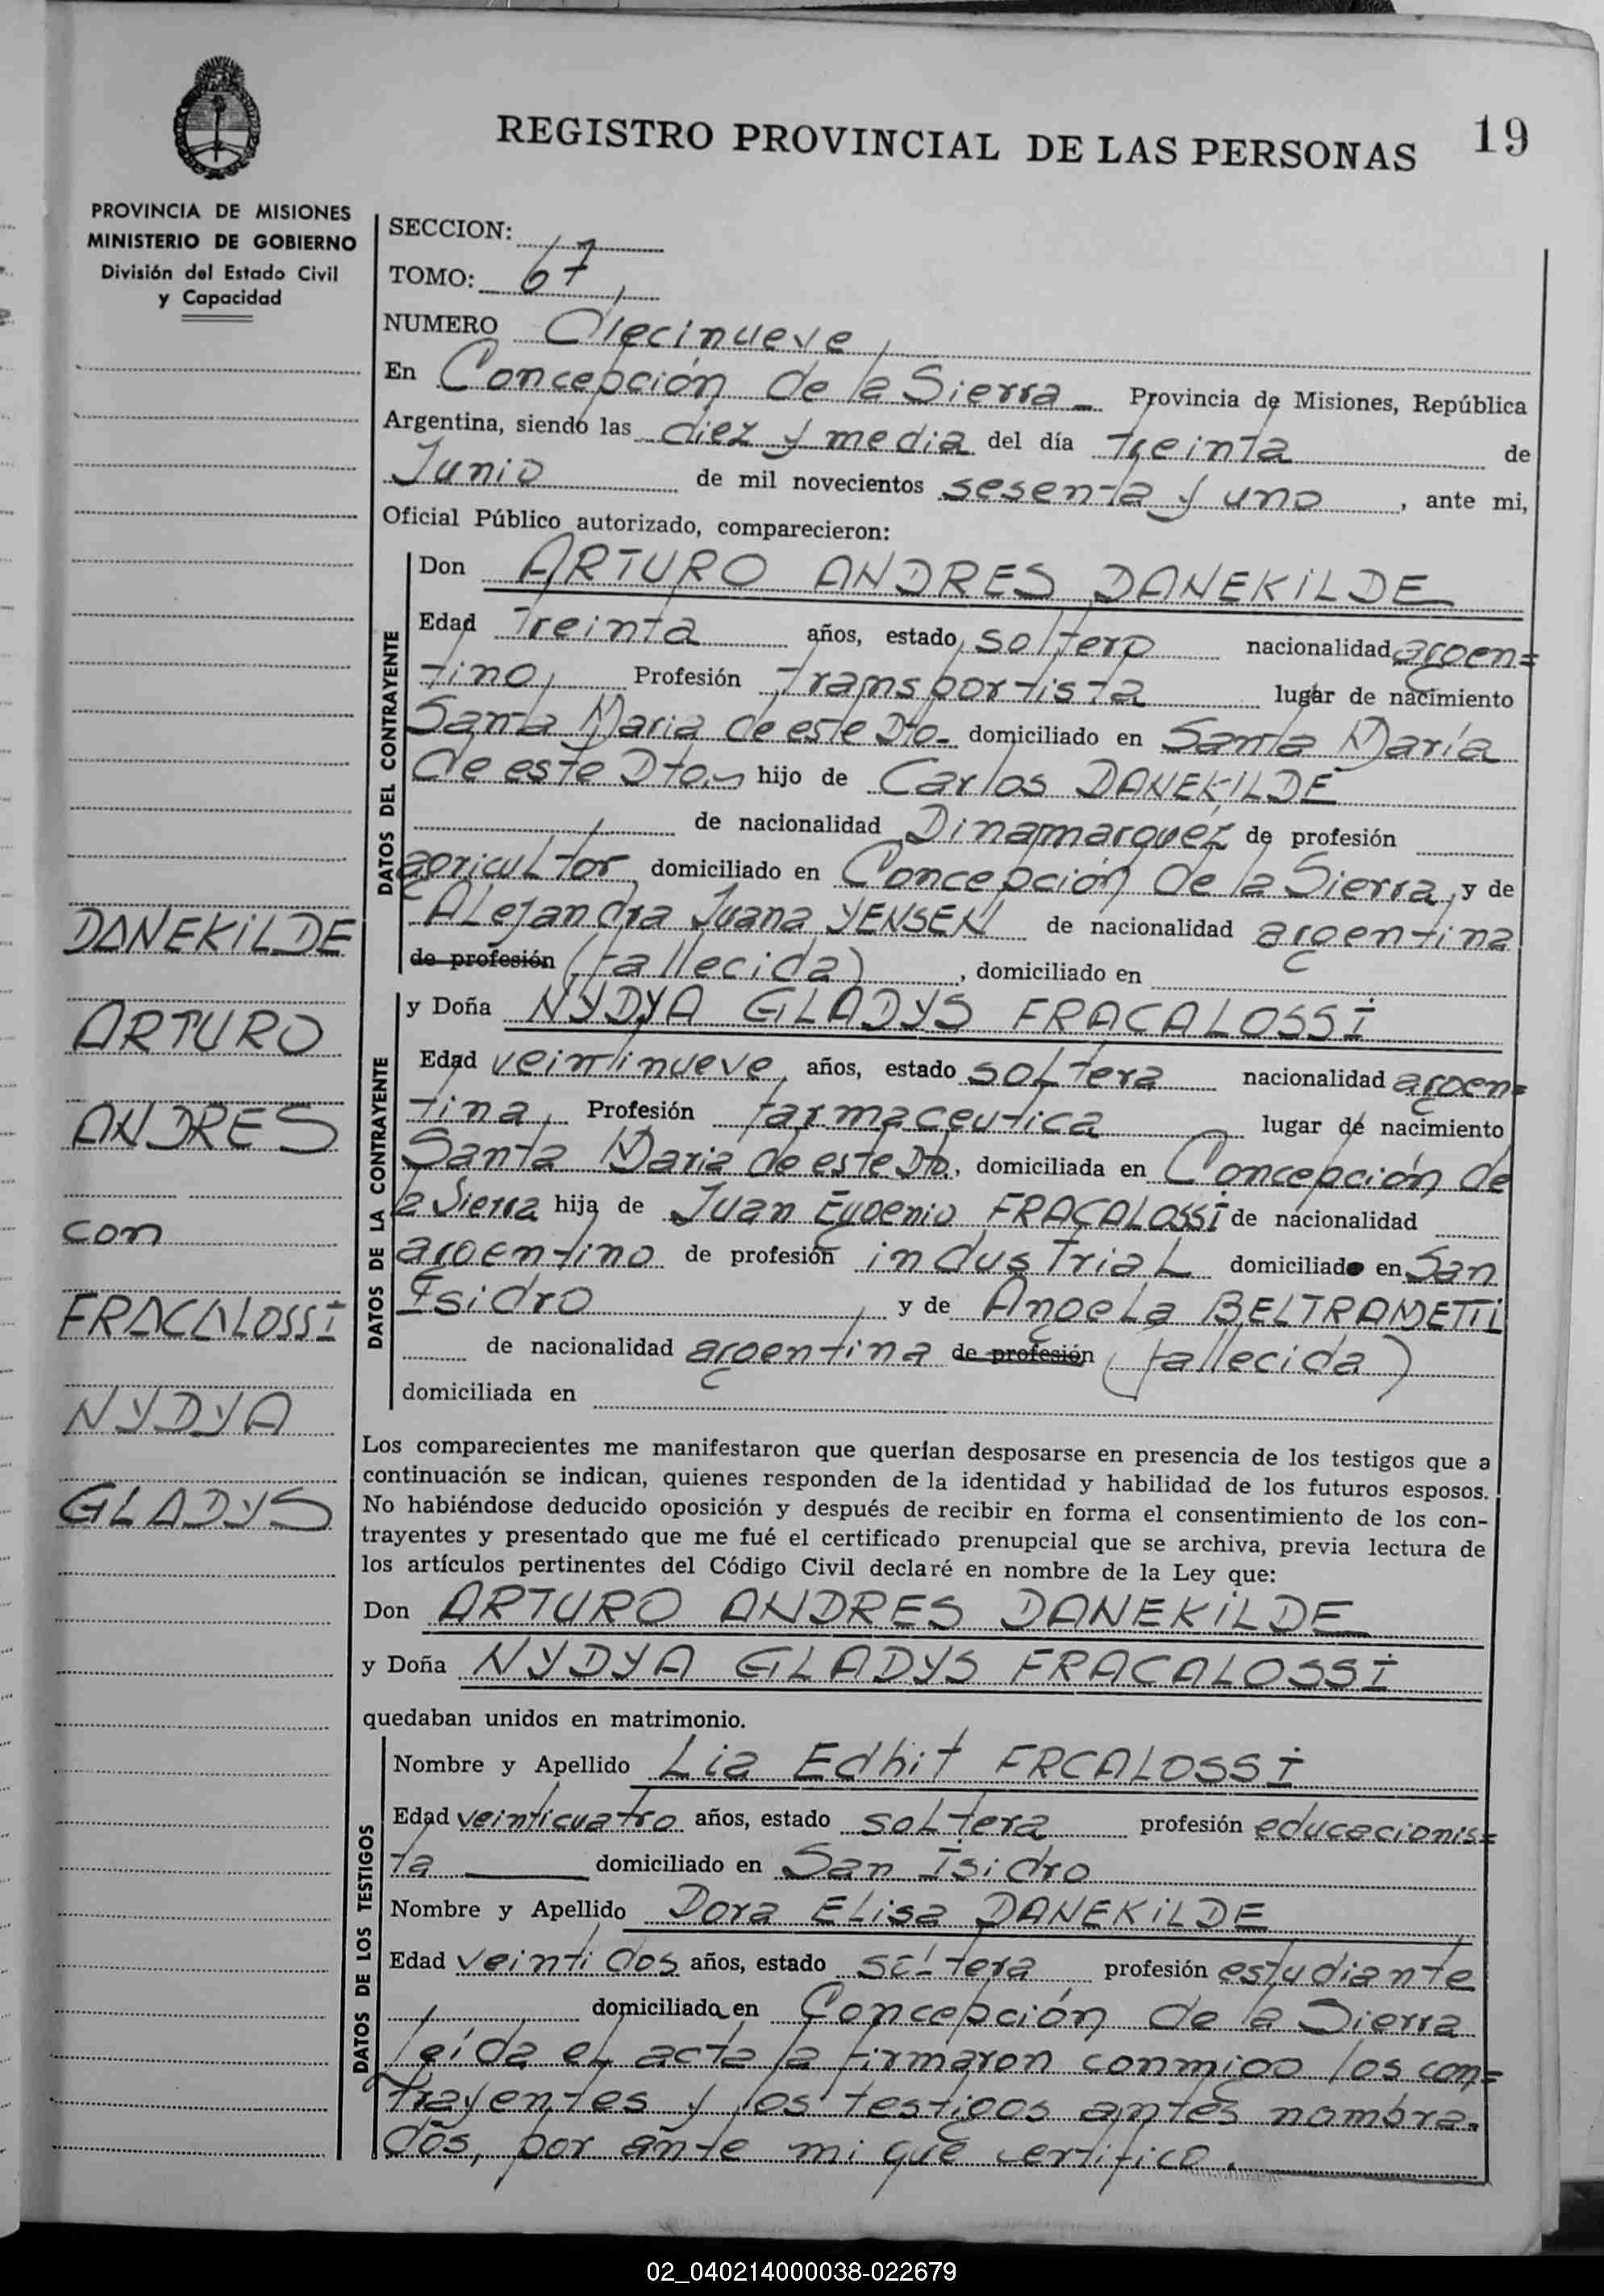 REGISTRO PROVINCIAL DE LAS PERSONAS 19
PROVINCIA DE MISIONES
MINISTERIO DE GOBIERNO
División del Estado Civil
y Capacidad
DANEKILDE
ARTURO
ANDRES
con
FRACALOSSI
NYDYA
GLADYS
SECCION:
TOMO: 67
NUMERO Diecinueve
En Concepción de la Sierra - Provincia de Misiones, República
Argentina, siendo las diez y media del día treinta de
Junio de mil novecientos sesenta y uno, ante mi,
Oficial Público autorizado, comparecieron:
DATOS DEL CONTRAYENTE
Don ARTURO ANDRES DANEKILDE
Edad Treinta años, estado soltero nacionalidad argen=
tino, Profesión Transportista lugar de nacimiento
Santa Maria de este Dto- domiciliado en Santa María
de este Dto. hijo de Carlos DANEKILDE
de nacionalidad Dinamarquez de profesión
agricultor domiciliado en Concepción de la Sierra, y de
Alejandra Juana YENSEN de nacionalidad argentina
de profesión (fallecida), domiciliado en
DATOS DE LA CONTRAYENTE
y Doña NYDYA GLADYS FRACALOSSI
Edad veintinueve, años, estado soltera nacionalidad argen=
tina, Profesión farmaceutica lugar de nacimiento
Santa Maria de este Dto., domiciliada en Concepción de
la Sierra hija de Juan Eugenio FRACALOSSI de nacionalidad
argentino de profesión industrial domiciliado en San
Isidro y de Angela BELTRAMETTI
de nacionalidad argentina de profesión (fallecida)
domiciliada en
Los comparecientes me manifestaron que querían desposarse en presencia de los testigos que a
continuación se indican, quienes responden de la identidad y habilidad de los futuros esposos.
No habiéndose deducido oposición y después de recibir en forma el consentimiento de los con-
trayentes y presentado que me fué el certificado prenupcial que se archiva, previa lectura de
los artículos pertinentes del Código Civil declaré en nombre de la Ley que:
Don ARTURO ANDRES DANEKILDE
y Doña NYDYA GLADYS FRACALOSSI
quedaban unidos en matrimonio.
DATOS DE LOS TESTIGOS
Nombre y Apellido Lia Edhit FRCALOSSI
Edad veinticuatro años, estado soltera profesión educacionis=
ta domiciliado en San Isidro
Nombre y Apellido Dora Elisa DANEKILDE
Edad veinti dos años, estado soltera profesión estudiante
domiciliada en Concepción de la Sierra
leída el acta la firmaron conmigo los con=
trayentes y los testigos antes nombra-
dos, por ante mi que certifico.
02_040214000038-022679